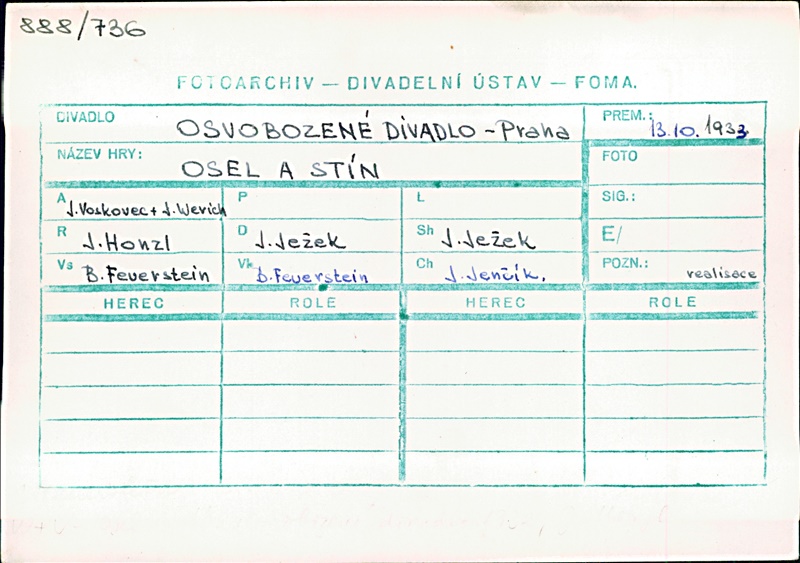 888/736
FOTOARCHIV — DIVADELNÍ ÚSTAV — FOMA.
DIVADLO OSVOBOZENÉ DIVADLO - Praha PREM.: 13.10.1933
NÁZEV HRY: OSEL A STÍN FOTO
A J. Voskovec + J. Werich P L SIG.:
R J. Honzl D J. Ježek Sh J. Ježek E/
Vs B. Feuerstein Vk B. Feuerstein Ch J. Jenčík. POZN.: realisace
HEREC ROLE HEREC ROLE